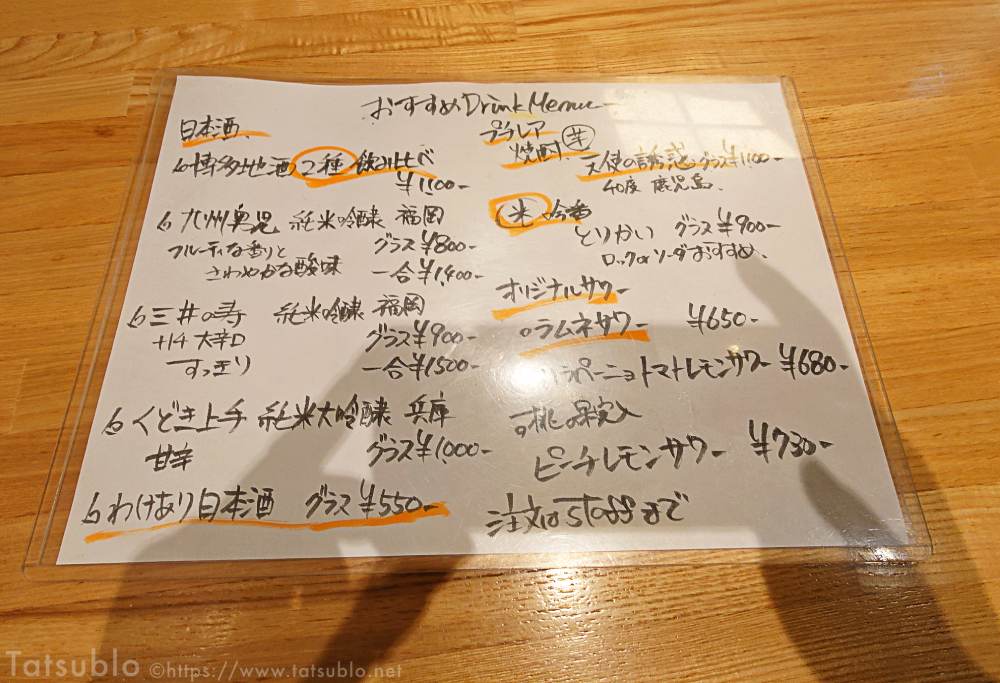 おすすめDrink Menu
日本酒
博多地酒2種 飲み比べ
¥1,100-
九州男児 純米吟醸 福岡
フルーティな香りと グラス¥800-
さわやかな酸味 一合¥1,400-
三井の寿 純米吟醸 福岡
+14 大辛口 グラス¥900-
すっきり 一合¥1500-
くどき上手 純米大吟醸 兵庫
甘辛 グラス¥1,000-
わけあり日本酒 グラス ¥550-
プレミア
焼酎 芋
天使の誘惑 グラス¥1100-
40度 鹿児島
米 吟香
とりかい グラス¥900-
ロックorソーダおすすめ、
オリジナルサワー
ラムネサワー ¥650-
ハラペーニョトマトレモンサワー ¥680-
桃の果実入
ピーチレモンサワー ¥730-
注文はstaffまで
Tatsublo ©https://www.tatsublo.net